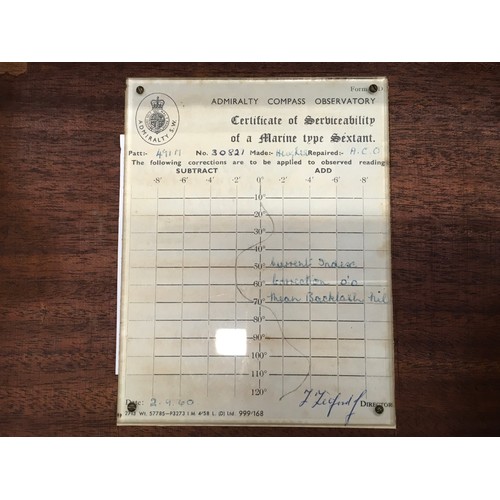 Form
ADMIRALTY COMPASS OBSERVATORY
Certificate of Serviceability
of a Marine type Sextant.
ADMIRALTY S.W.
Patt:- No. 30821 Made:- Hughes Repaired:- A.C.O
The following corrections are to be applied to observed reading
SUBTRACT ADD
·8' ·6' ·4' ·2' 0° ·2' ·4' ·6' ·8'
10°
20°
30°
40°
50°
60°
70°
80°
90°
100°
110°
120°
Current Index
Correction 0'0
Mean Backlash nil
Date: 2.4.60
DIRECTOR
Wt. 57785—P3273 1 M 4*58 L. (D) Ltd. 999-168